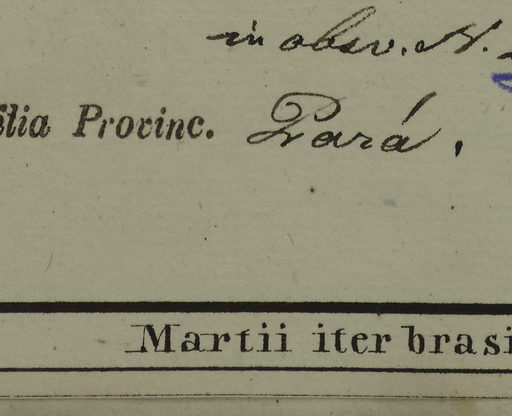 in obsv. N.
ilia Provinc. Pará.
Martii iter brasi